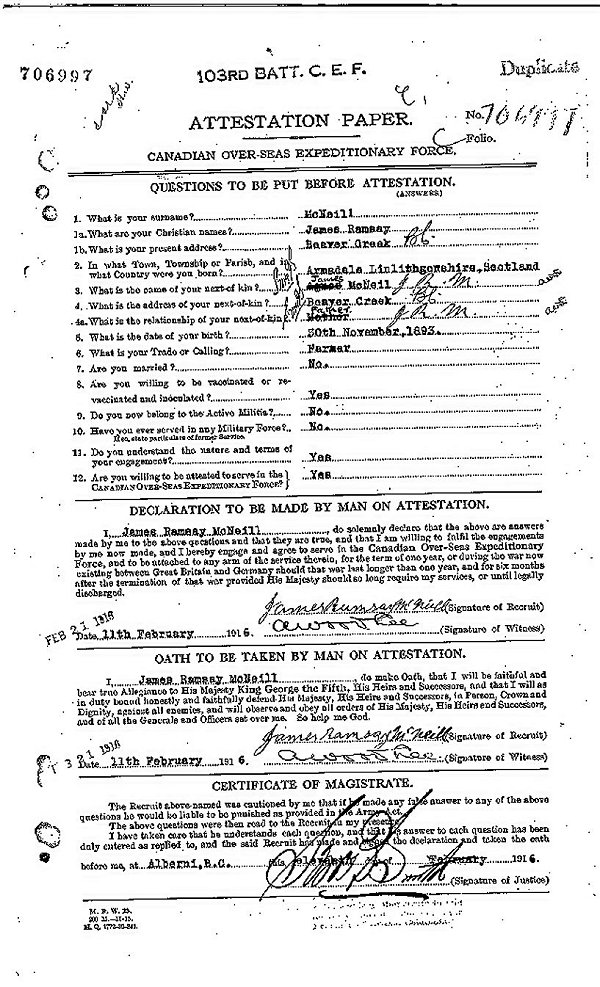 706997
103RD BATT. C. E. F.
Duplicate
ATTESTATION PAPER.
No. 706997
Folio.
CANADIAN OVER-SEAS EXPEDITIONARY FORCE.
QUESTIONS TO BE PUT BEFORE ATTESTATION.
(ANSWERS)
1. What is your surname? McNeill
1a. What are your Christian names? James Ramsay
1b. What is your present address? Beaver Creek BC
2. In what Town, Township or Parish, and in
what Country were you born? Armadale Linlithgowshire, Scotland
3. What is the name of your next-of kin? James McNeil J R M
4. What is the address of your next-of-kin? Beaver Creek BC
4a. What is the relationship of your next-of-kin? Father Mother J R M
5. What is the date of your birth? 30th November, 1893.
6. What is your Trade or Calling? Farmer
7. Are you married? No.
8. Are you willing to be vaccinated or re-
vaccinated and inoculated? Yes
9. Do you now belong to the Active Militia? No.
10. Have you ever served in any Military Force? No.
If so, state particulars of former Service.
11. Do you understand the nature and terms of
your engagement? Yes
12. Are you willing to be attested to serve in the
CANADIAN OVER-SEAS EXPEDITIONARY FORCE? Yes
DECLARATION TO BE MADE BY MAN ON ATTESTATION.
I, James Ramsay McNeill, do solemnly declare that the above are answers
made by me to the above questions and that they are true, and that I am willing to fulfil the engagements
by me now made, and I hereby engage and agree to serve in the Canadian Over-Seas Expeditionary
Force, and to be attached to any arm of the service therein, for the term of one year, or during the war now
existing between Great Britain and Germany should that war last longer than one year, and for six months
after the termination of that war provided His Majesty should so long require my services, or until legally
discharged.
James Ramsay McNeill (Signature of Recruit)
FEB 21 1916
Date 11th February 1916. (Signature of Witness)
OATH TO BE TAKEN BY MAN ON ATTESTATION.
I, James Ramsay McNeill, do make Oath, that I will be faithful and
bear true Allegiance to His Majesty King George the Fifth, His Heirs and Successors, and that I will as
in duty bound honestly and faithfully defend His Majesty, His Heirs and Successors, in Person, Crown and
Dignity, against all enemies, and will observe and obey all orders of His Majesty, His Heirs and Successors,
and of all the Generals and Officers set over me. So help me God.
James Ramsay McNeill (Signature of Recruit)
21 1916
Date 11th February 1916. (Signature of Witness)
CERTIFICATE OF MAGISTRATE.
The Recruit above-named was cautioned by me that if he made any false answer to any of the above
questions he would be liable to be punished as provided in the Army Act.
The above questions were then read to the Recruit in my presence.
I have taken care that he understands each question, and that his answer to each question has been
duly entered as replied to, and the said Recruit has made and signed the declaration and taken the oath
before me, at Alberni, B.C. this eleventh day of February 1916.
(Signature of Justice)
M. F. W. 23.